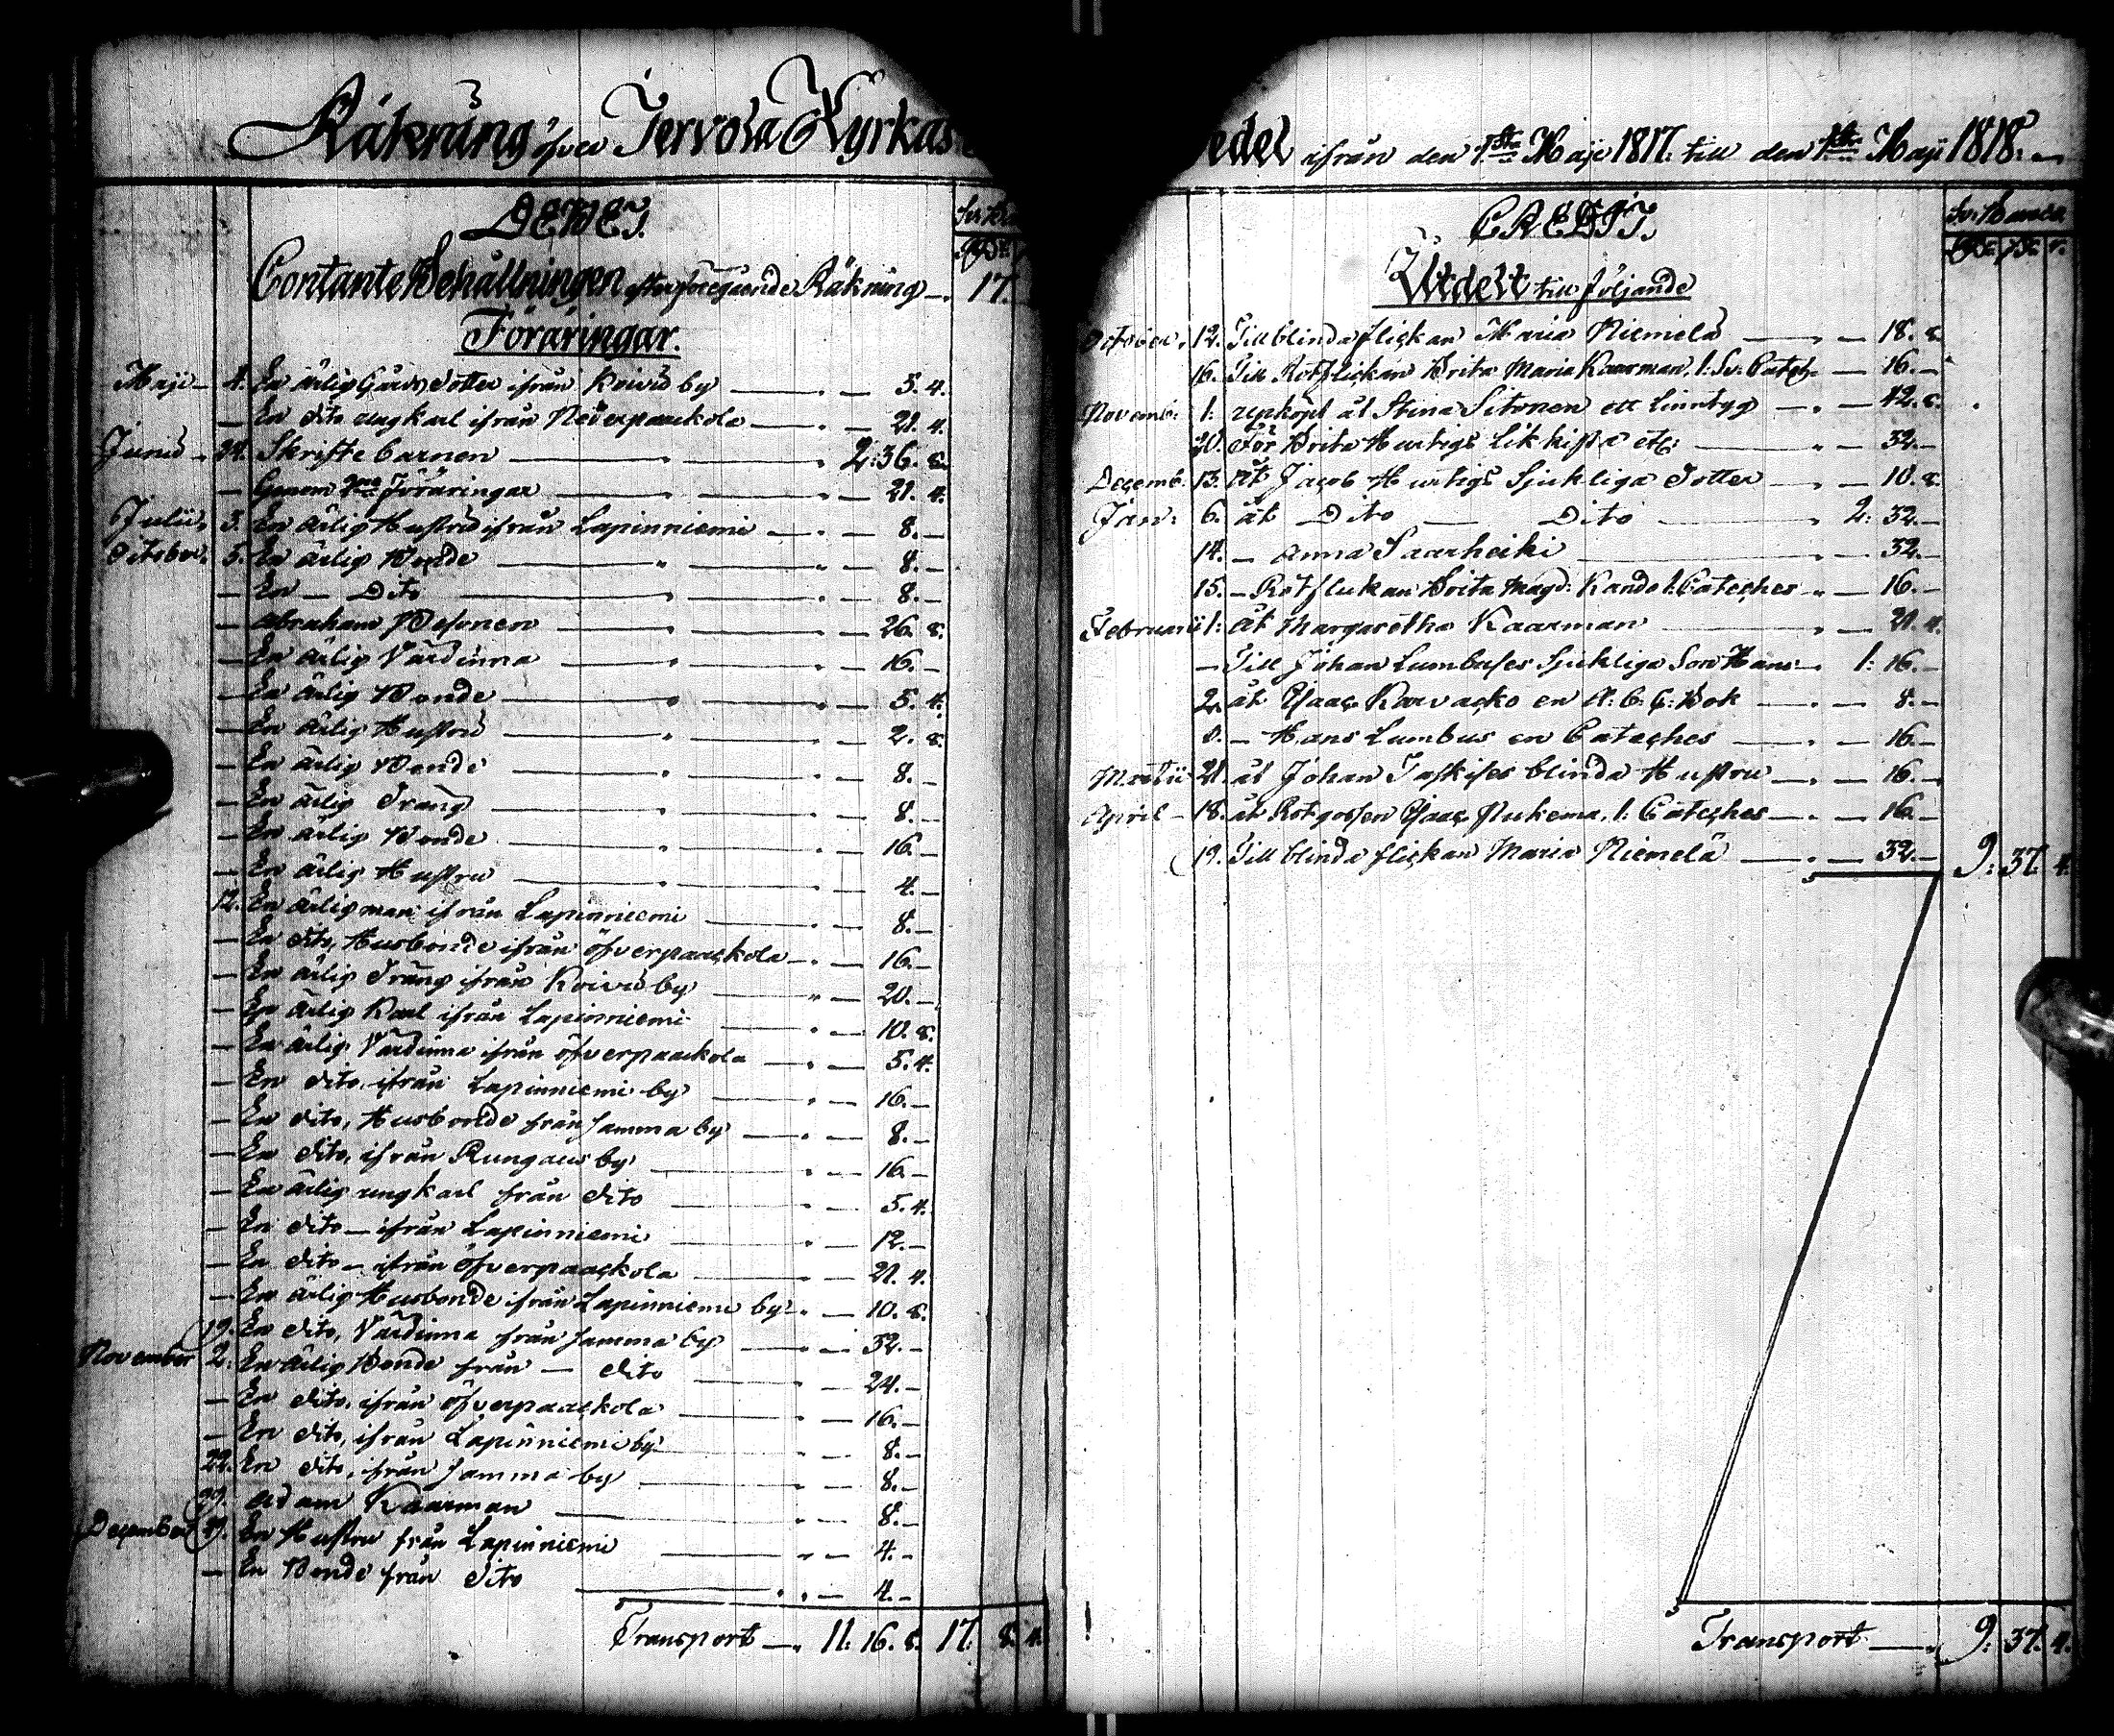 Räkning öfver Jervola Kyrkas
DEBET.
Contante Behållningen efter föregående Räkning — 17.
Föräringar.
Maji — 4. En ärlig Gårds dotter ifrån Koivu by — " — 5. 4.
— En dito ungkarl ifrån Nederpaackola — " — 21. 4.
Junii — 24. Skriftebarnen — " — " 2: 36. 8.
— Genom Föräringar — " — 21. 4.
Julii, 3. En ärlig Hustru ifrån Lapinniemi — " — 8. —
October. 5. En ärlig Bonde — " — " — 8. —
— En — Dito — " — " — 8. —
— Abraham — " — " — 26. 8.
— En ärlig Värdinna — " — " — 16. —
— En ärlig Bonde — " — " — 5. 4.
— En ärlig Hustru — " — " — 2. 8.
— En ärlig Bonde — " — " — 8. —
— En ärlig Dräng — " — " — 8. —
— En ärlig Bonde — " — " — 16. —
— En ärlig Hustru — " — " — 4. —
12. En ärlig man ifrån Lapinniemi — " — 8. —
— En dito, Husbonde ifrån öfverpaackola — " — 16. —
— En ärlig Dräng ifrån Koivu by — " — 20. —
— En ärlig Karl ifrån Lapinniemi — " — 10. 8.
— En ärlig Värdinna ifrån öfverpaackola — " — 5. 4.
— En dito, ifrån Lapinniemi by — " — 16. —
— En dito, Husbonde från samma by — " — 8. —
— En dito, ifrån Rungaus by — " — 16. —
— En ärlig ungkarl från dito — " — 5. 4.
— En dito — ifrån Lapinniemi — " — 12. —
— En dito — ifrån öfverpaackola — " — 21. 4.
— En ärlig Husbonde ifrån Lapinniemi by — " — 10. 8.
19. En dito, Värdinna från samma by — " — 32. —
November 2. En ärlig Bonde från — dito — " — 24. —
— En dito, ifrån öfverpaackola — " — 16. —
— En dito, ifrån Lapinniemi by — " — 8. —
22. En dito, ifrån samma by — " — 8. —
Adam Kaarman — " — 8. —
December En Hustru från Lapinniemi — " — 4. —
— En Bonde från dito — " — 4. —
Transport — " 11: 16. 8. 17. 8. 4.
edel ifrån den 1sta Maji 1817. till den 1sta Maji 1818. —
CREDIT.
Utdelt till följande
October. 12. Till blinda flickan Maria Niemelä — " — 18. 8.
16. Till Rotflickan Brita Maria Kaarman, 1: Sv: Catech — 16. —
Novemb: 1: upköpt åt Stina Sitonen ett linntyg — " — 42. 8.
20. För Brita Hurtigs likkista etc: — " — 32. —
Decemb: 13. åt Jacob Hurtigs Sjukliga Dotter — " — 10. 8.
Jan: 6. åt Dito — Dito — " 2: 32. —
14. — Anna Saarheiki — " — 32. —
15. — Rotflickan Brita Magd: Kando 1. Cateches — " — 16. —
Februarii 1: åt Margaretha Kaarman — " — 21. 4.
— Till Johan Lumbuses Sjukliga Son Hans — " 1: 16. —
2. åt Isaac en A: B: C: Bok — " — 8. —
8. — Hans Lumbus en Cateches — " — 16. —
Martii 21. åt Johan blinda Hustru — " — 16. —
April — 18. åt Rotgossen Isaac 1: Cateches — " — 16. —
19. Till blinda flickan Maria Niemelä — " — 32. — 9: 37. 4.
Transport — " 9: 37. 4.